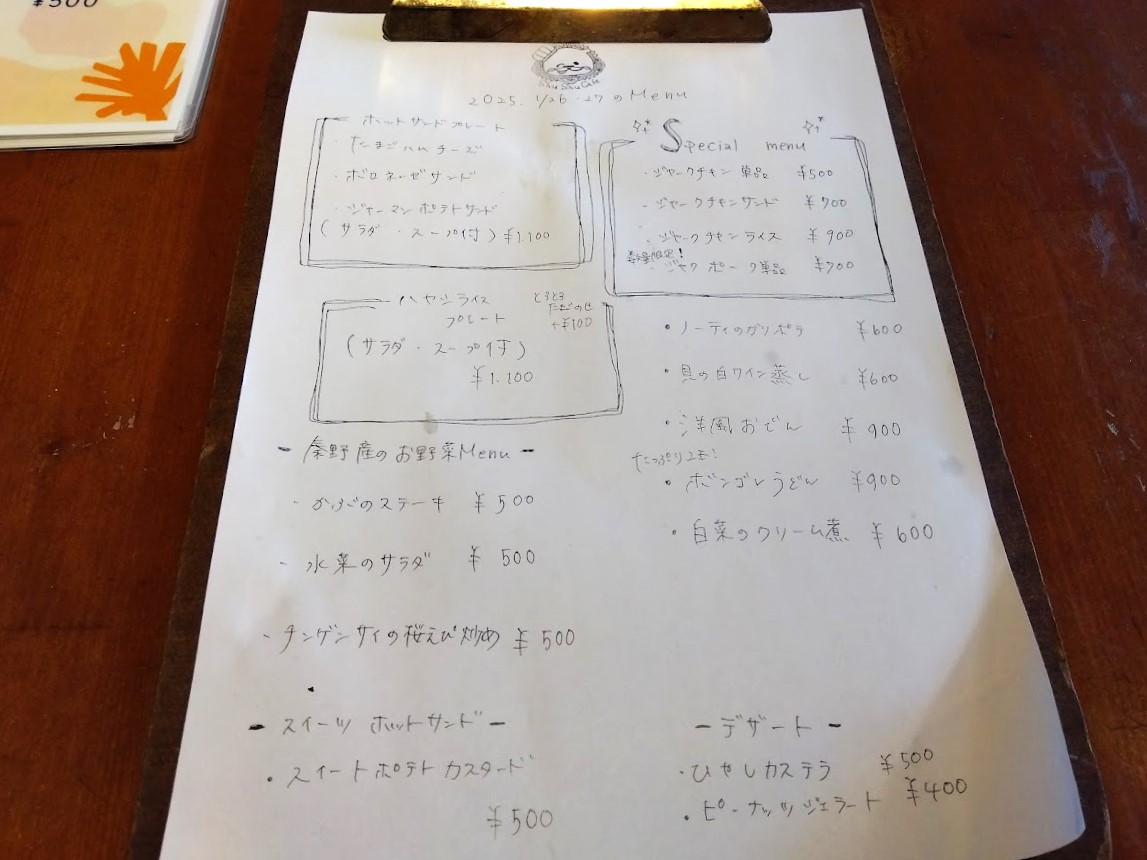 ¥500
Shu Shu Cafe
2025. 1/26・27 の Menu
ホットサンドプレート
・たまごハムチーズ
・ボロネーゼサンド
・ジャーマンポテトサンド
(サラダ・スープ付) ¥1.100
ハヤシライス
プレート
とろとろ
たまごのせ
+¥100
(サラダ・スープ付)
¥1.100
- 秦野産のお野菜Menu -
・かぶのステーキ ¥500
・水菜のサラダ ¥500
・チンゲンサイの桜えび炒め ¥500
- スイーツ ホットサンド -
・スイートポテトカスタード
¥500
Special menu
・ジャークチキン単品 ¥500
・ジャークチキンサンド ¥700
・ジャークチキンライス ¥900
数量限定!
・ジャクポーク単品 ¥700
・ノーティのガリポテ ¥600
・貝の白ワイン蒸し ¥600
・洋風おでん ¥900
たっぷり2玉!
・ボンゴレうどん ¥900
・白菜のクリーム煮 ¥600
- デザート -
・ひやしカステラ ¥500
・ピーナッツジェラート ¥400